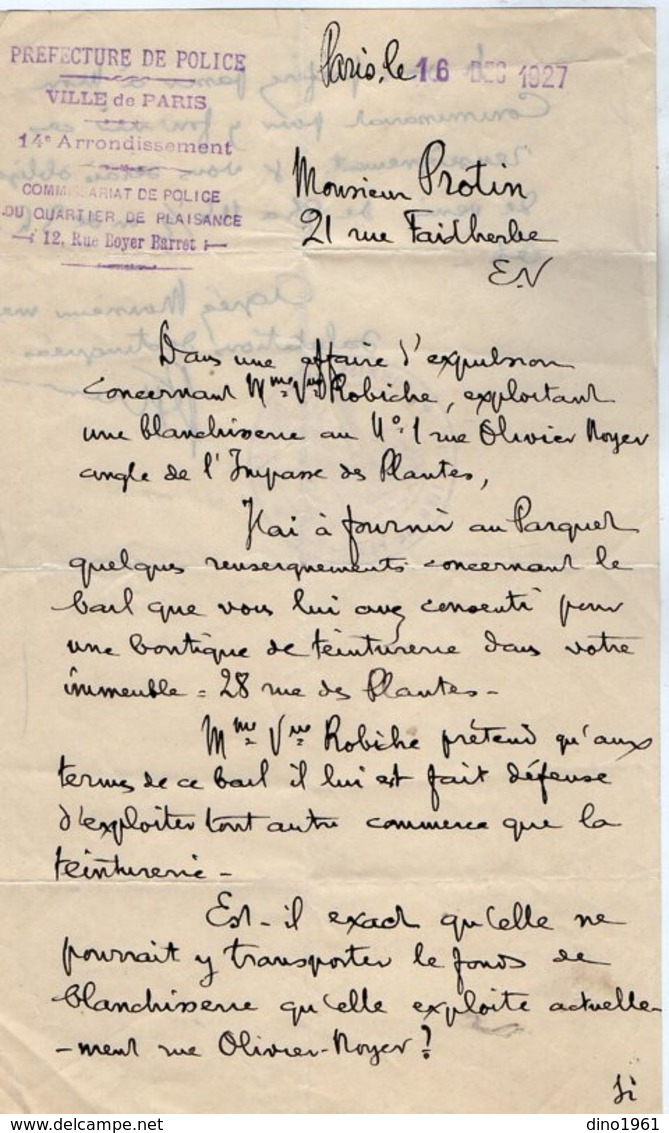 PREFECTURE DE POLICE
VILLE de PARIS
14e Arrondissement
COMMISSARIAT DE POLICE
DU QUARTIER DE PLAISANCE
12, Rue Boyer Barret
Paris, le 16 DEC 1927
Monsieur Protin
21 rue Faidherbe
EV
Dans une affaire d'expulsion
concernant Mme Vve Robiche, exploitant
une blanchisserie au No 1 rue Olivier Noyer
angle de l'Impasse des Plantes,
J'ai à fournir au Parquet
quelques renseignements concernant le
bail que vous lui avez consenti pour
une boutique de teinturerie dans votre
immeuble = 28 rue des Plantes -
Mme Vve Robiche prétend qu'aux
termes de ce bail il lui est fait défense
d'exploiter tout autre commerce que la
teinturerie -
Est-il exact qu'elle ne
pourrait y transporter le fonds de
blanchisserie qu'elle exploite actuelle-
-ment rue Olivier-Noyer ?
Si
dino1961